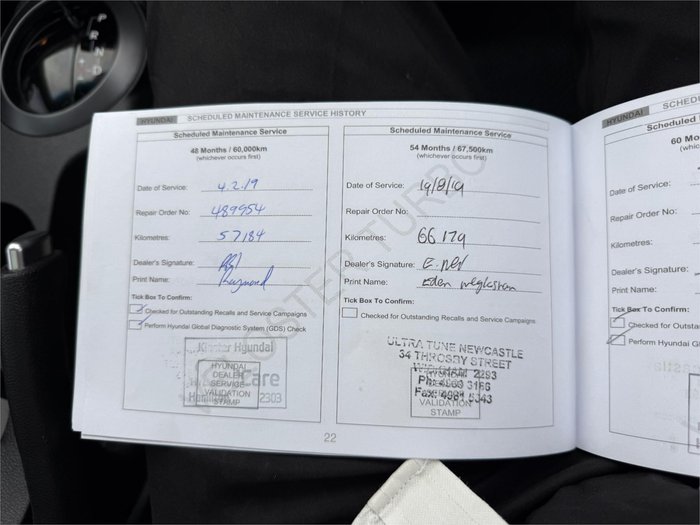 P
R
N
D
HYUNDAI SCHEDULED MAINTENANCE SERVICE HISTORY
Scheduled Maintenance Service
48 Months / 60,000km
(whichever occurs first)
Date of Service: 4.2.19
Repair Order No: 489954
Kilometres: 57184
Dealer's Signature:
Print Name: Raymond
Tick Box To Confirm:
Checked for Outstanding Recalls and Service Campaigns
Perform Hyundai Global Diagnostic System (GDS) Check
Hyundai
HYUNDAI
DEALER
SERVICE Care
VALIDATION
STAMP 2303
Scheduled Maintenance Service
54 Months / 67,500km
(whichever occurs first)
Date of Service: 19/8/19
Repair Order No:
Kilometres: 66179
Dealer's Signature:
Print Name: Eden
Tick Box To Confirm:
Checked for Outstanding Recalls and Service Campaigns
ULTRA TUNE NEWCASTLE
34 THROSBY STREET
2293
Ph: 3166
Fax: 4961 5343
VALIDATION
STAMP
22
HYUNDAI SCHED
Scheduled
60 Mo
(whic
Date of Service:
Repair Order No:
Kilometres:
Dealer's Signature:
Print Name:
Tick Box To Confirm:
Checked for Outst
Perform Hyundai Gl